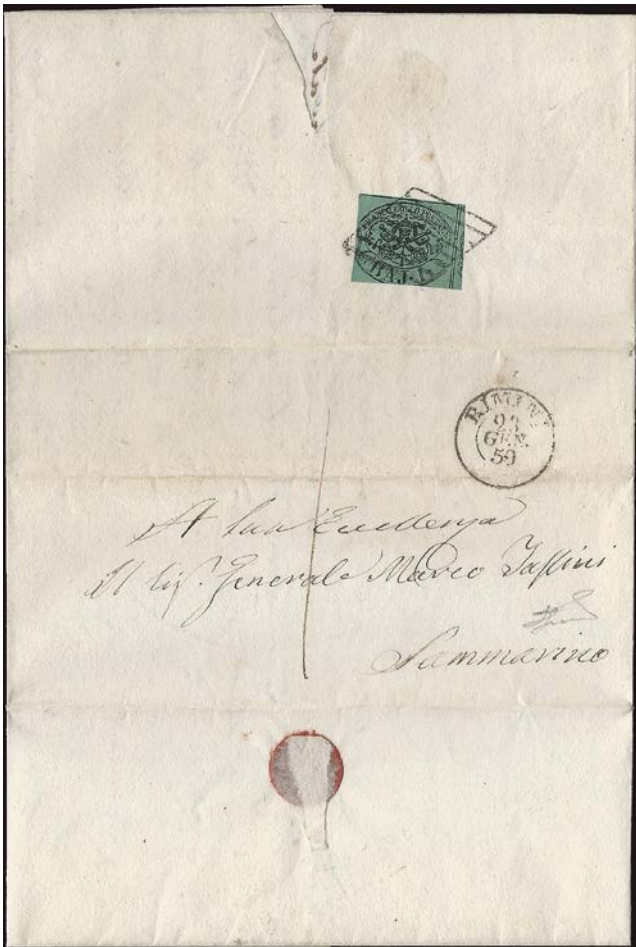 BAJ. 1.
RIMINI
23
GEN
59
A Sua Eccellenza
Il Sigʳ. Generale Marco Tassini
Sammarino